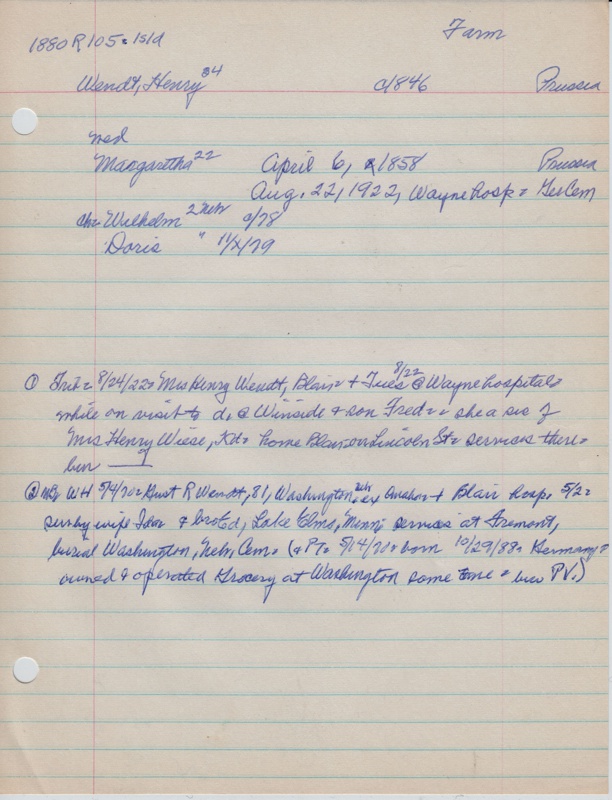 1880 R 105 = Isld
Farm
Wendt, Henry 34 c/846 Prussia
wed
Margaretha 22 April 6, 1858 Prussia
Aug. 22, 1922, Wayne hosp = Ger Cem
chr Wilhelm 2 Neb c/78
Doris " 11/x/79
① Trib = 8/24/22 = Mrs Henry Wendt, Blair + Tues 8/22 @ Wayne hospital =
while on visit to d. @ Winside + son Fred = she a sis of
Mrs Henry Wiese, Kd = home Blair on Lincoln St = services there =
bur
② WH 5/4/70 = Gust R Wendt, 81, Washington, Neb, + Blair hosp. 5/2 =
surv by wife Ida + bro Ed, Lake Elmo, Minn = services at Fremont,
burial Washington, Neb, Cem. = (+ PT = 5/14/70 = born 10/29/88 = Germany =
owned & operated Grocery at Washington some time = bur PV.)